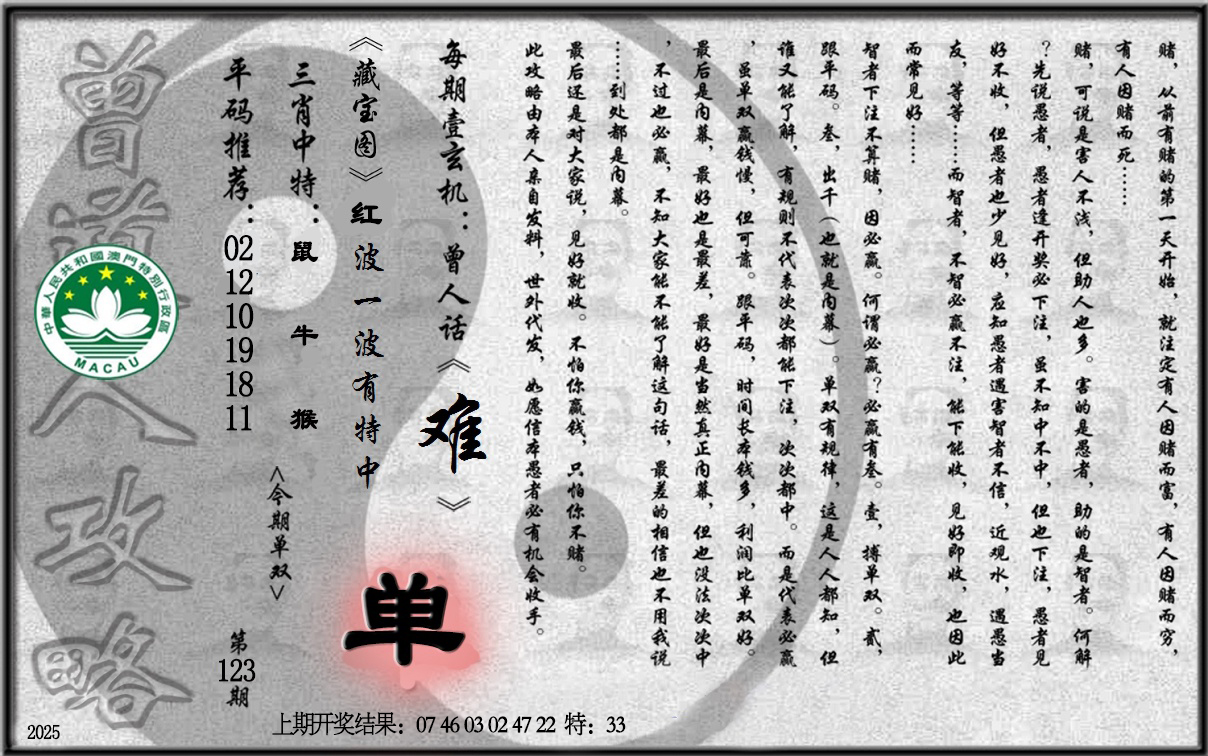 赌，从前有赌的第一天开始，就注定有人因赌而富，有人因赌而穷，
有人因赌而死……
赌，可说是害人不浅，但助人也多。害的是愚者，助的是智者。何解
？先说愚者，愚者逢开奖必下注，虽不知中不中，但也下注，愚者见
好不收，但愚者也少见好，应知愚者遇害智者不信，近观水，遇愚当
友，等等……而智者，不智必赢不注，能下能收，见好即收，也因此
而常见好……
智者下注不算赌，因必赢。何谓必赢？必赢有叁。壹，搏单双。贰，
跟平码。叁，出千（也就是内幕）。单双有规律，这是人人都知，但
谁又能了解，有规则不代表次次都能下注，次次都中。而是代表必赢
，虽单双赢钱慢，但可靠。跟平码，时间长本钱多，利润比单双好。
最后是内幕，最好也是最差，最好是当然真正内幕，但也没法次次中
，不过也必赢，不知大家能不能了解这句话，最差的相信也不用我说
……到处都是内幕。
最后还是对大家说，见好就收。不怕你赢钱，只怕你不赌。
此攻略由本人亲自发料，世外代发，如愿信本愚者必有机会收手。
每期壹玄机：曾人话《难》
《藏宝图》红波一波有特中
单
三肖中特：鼠 牛 猴
<今期单双>
平码推荐：02 12 10 19 18 11
第123期
曾道人攻略
中華人民共和國澳門特別行政區
MACAU
上期开奖结果：07 46 03 02 47 22 特：33
2025